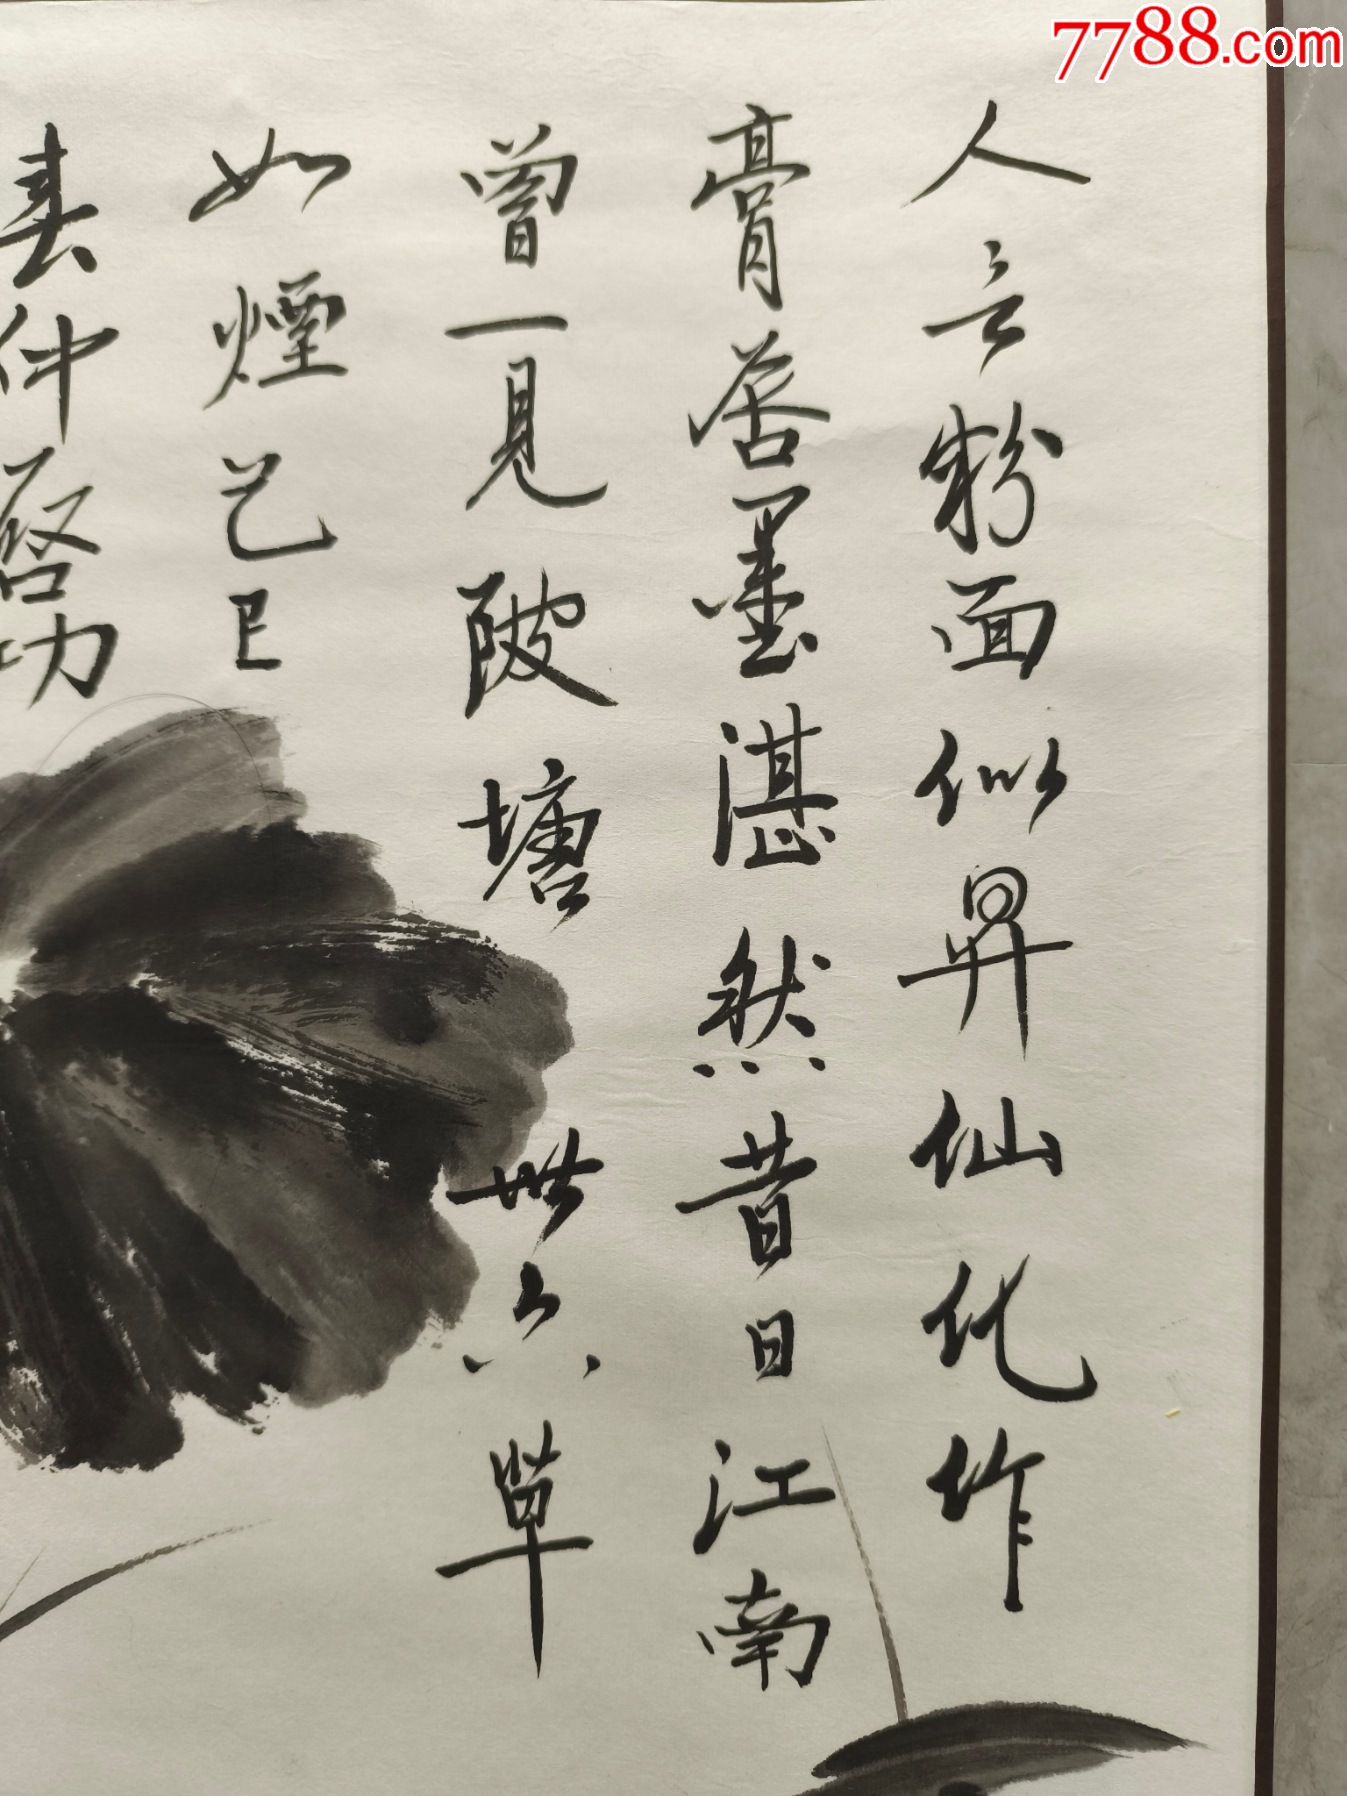 7788.com
人言粉面似昇仙化作
膏荅墨湛然昔日江南
曾一見陂塘卅六草
如煙己巳
春仲啓功